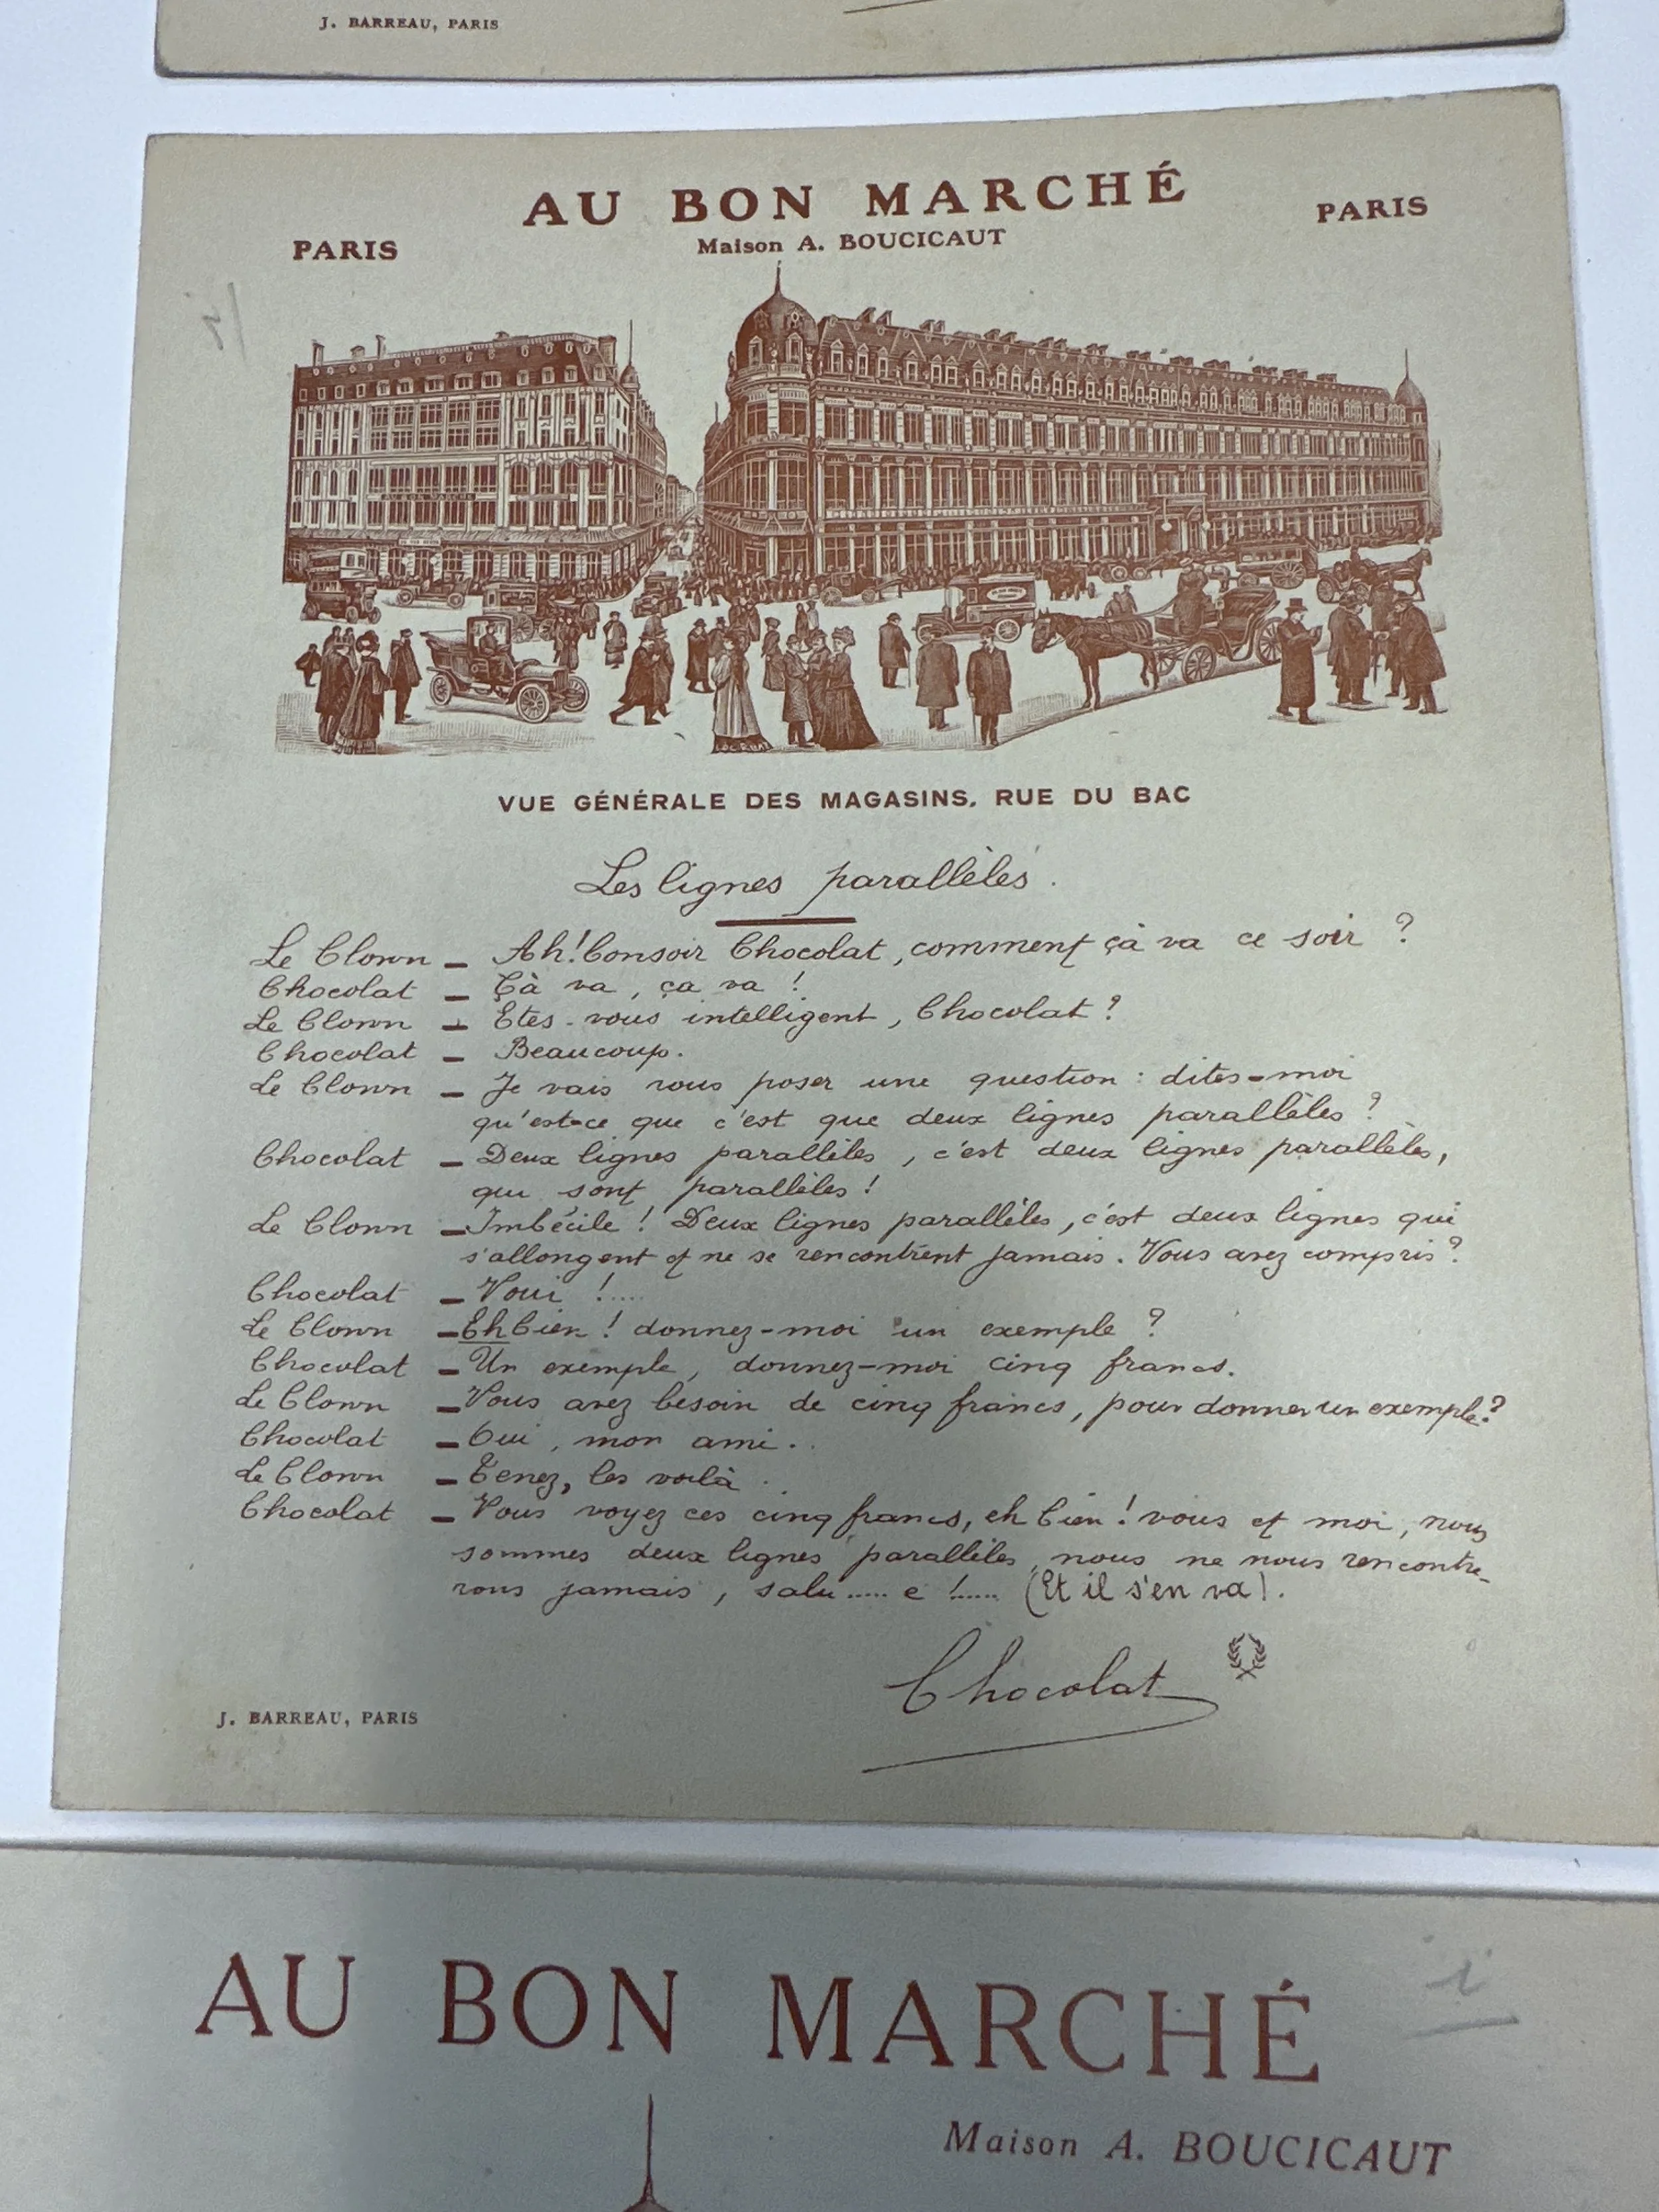 J. BARREAU, PARIS
AU BON MARCHÉ
Maison A. BOUCICAUT
PARIS
PARIS
VUE GÉNÉRALE DES MAGASINS. RUE DU BAC
Les lignes parallèles.
Le Clown — Ah! bonsoir Chocolat, comment çà va ce soir ?
Chocolat — Çà va, ça va !
Le Clown — Etes-vous intelligent, Chocolat ?
Chocolat — Beaucoup.
Le Clown — Je vais vous poser une question : dites-moi
qu'est-ce que c'est que deux lignes parallèles ?
Chocolat — Deux lignes parallèles, c'est deux lignes parallèles,
qui sont parallèles !
Le Clown — Imbécile ! Deux lignes parallèles, c'est deux lignes qui
s'allongent et ne se rencontrent jamais. Vous avez compris ?
Chocolat — Voui !.....
Le Clown — Eh bien ! donnez-moi un exemple ?
Chocolat — Un exemple, donnez-moi cinq francs.
Le Clown — Vous avez besoin de cinq francs, pour donner un exemple ?
Chocolat — Oui, mon ami..
Le Clown — Tenez, les voilà.
Chocolat — Vous voyez ces cinq francs, eh bien ! vous et moi, nous
sommes deux lignes parallèles, nous ne nous rencontre-
rons jamais, salu ..... e !..... (Et il s'en va).
Chocolat
J. BARREAU, PARIS
AU BON MARCHÉ
Maison A. BOUCICAUT